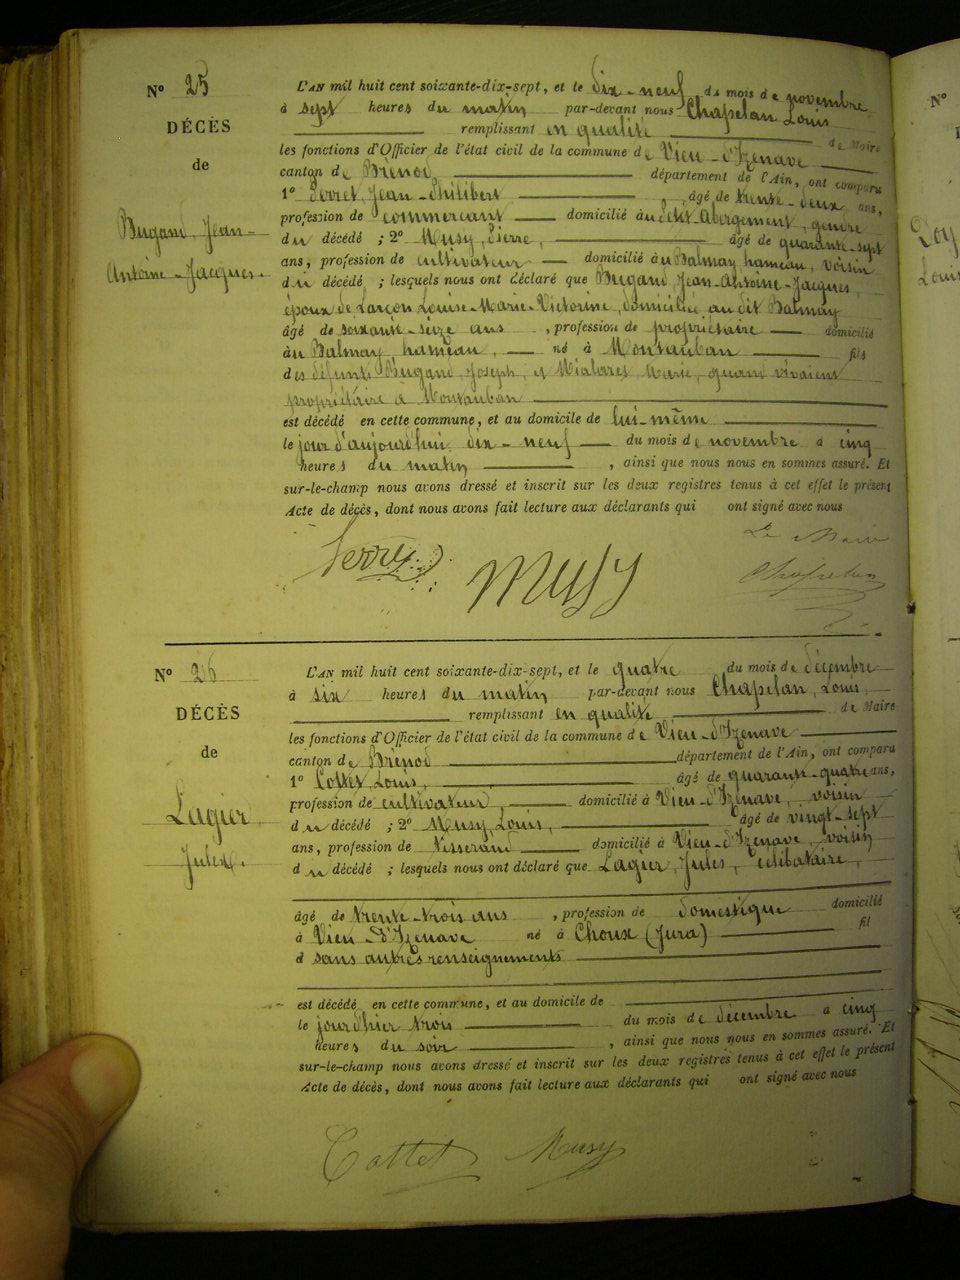 N° 25
DÉCÈS
de
Bugand Jean-
Antoine-Jacques.
L'AN mil huit cent soixante-dix-sept, et le dix-neuf du mois de novembre
à sept heures du matin par-devant nous Chapelan Louis
remplissant en qualité de Maire
les fonctions d'Officier de l'état civil de la commune de Vieu-d'Izenave
canton de Brénod, département de l'Ain, ont comparu
1° Perret Jean-Philibert, âgé de trente-deux ans,
profession de commerçant domicilié au Petit Abergement, gendre
du décédé ; 2° Musy, Pierre, âgé de quarante-sept
ans, profession de cultivateur domicilié au Balmay hameau, voisin
du décédé ; lesquels nous ont déclaré que Bugand Jean-Antoine-Jacques,
époux de Larçon Louise-Marie-Victorine, domiciliée au dit Balmay
âgé de soixante-seize ans, profession de propriétaire domicilié
au Balmay hameau, né à Montauban fils
des défunts Bugand, Joseph, et Mialares Marie, quand vivaient
propriétaire à Montauban
est décédé en cette commune, et au domicile de lui-même
le jour d'aujourd'hui dix-neuf du mois de novembre à cinq
heures du matin, ainsi que nous nous en sommes assuré. Et
sur-le-champ nous avons dressé et inscrit sur les deux registres tenus à cet effet le présent
Acte de décès, dont nous avons fait lecture aux déclarants qui ont signé avec nous
Le Maire
Perret Musy Chapelan
N° 26
DÉCÈS
de
Lagier
Jules.
L'AN mil huit cent soixante-dix-sept, et le quatre du mois de décembre
à six heures du matin par-devant nous Chapelan, Louis,
remplissant en qualité de Maire
les fonctions d'Officier de l'état civil de la commune de Vieu-d'Izenave
canton de Brénod département de l'Ain, ont comparu
1° Cottet Louis, âgé de quarante-quatre ans,
profession de cultivateur, domicilié à Vieu-d'Izenave, voisin
du décédé ; 2° Musy, Louis, âgé de vingt-sept
ans, profession de Tisserand domicilié à Vieu-d'Izenave, voisin
du décédé ; lesquels nous ont déclaré que Lagier, Jules, célibataire,
âgé de trente-trois ans, profession de domestique domicilié
à Vieu-d'Izenave né à Choux (Jura) fil
d sans autres renseignements
est décédé en cette commune, et au domicile de
le jour d'hier trois du mois de décembre à cinq
heures du soir, ainsi que nous nous en sommes assuré. Et
sur-le-champ nous avons dressé et inscrit sur les deux registres tenus à cet effet le présent
Acte de décès, dont nous avons fait lecture aux déclarants qui ont signé avec nous
Cottet Musy
N°
Louis